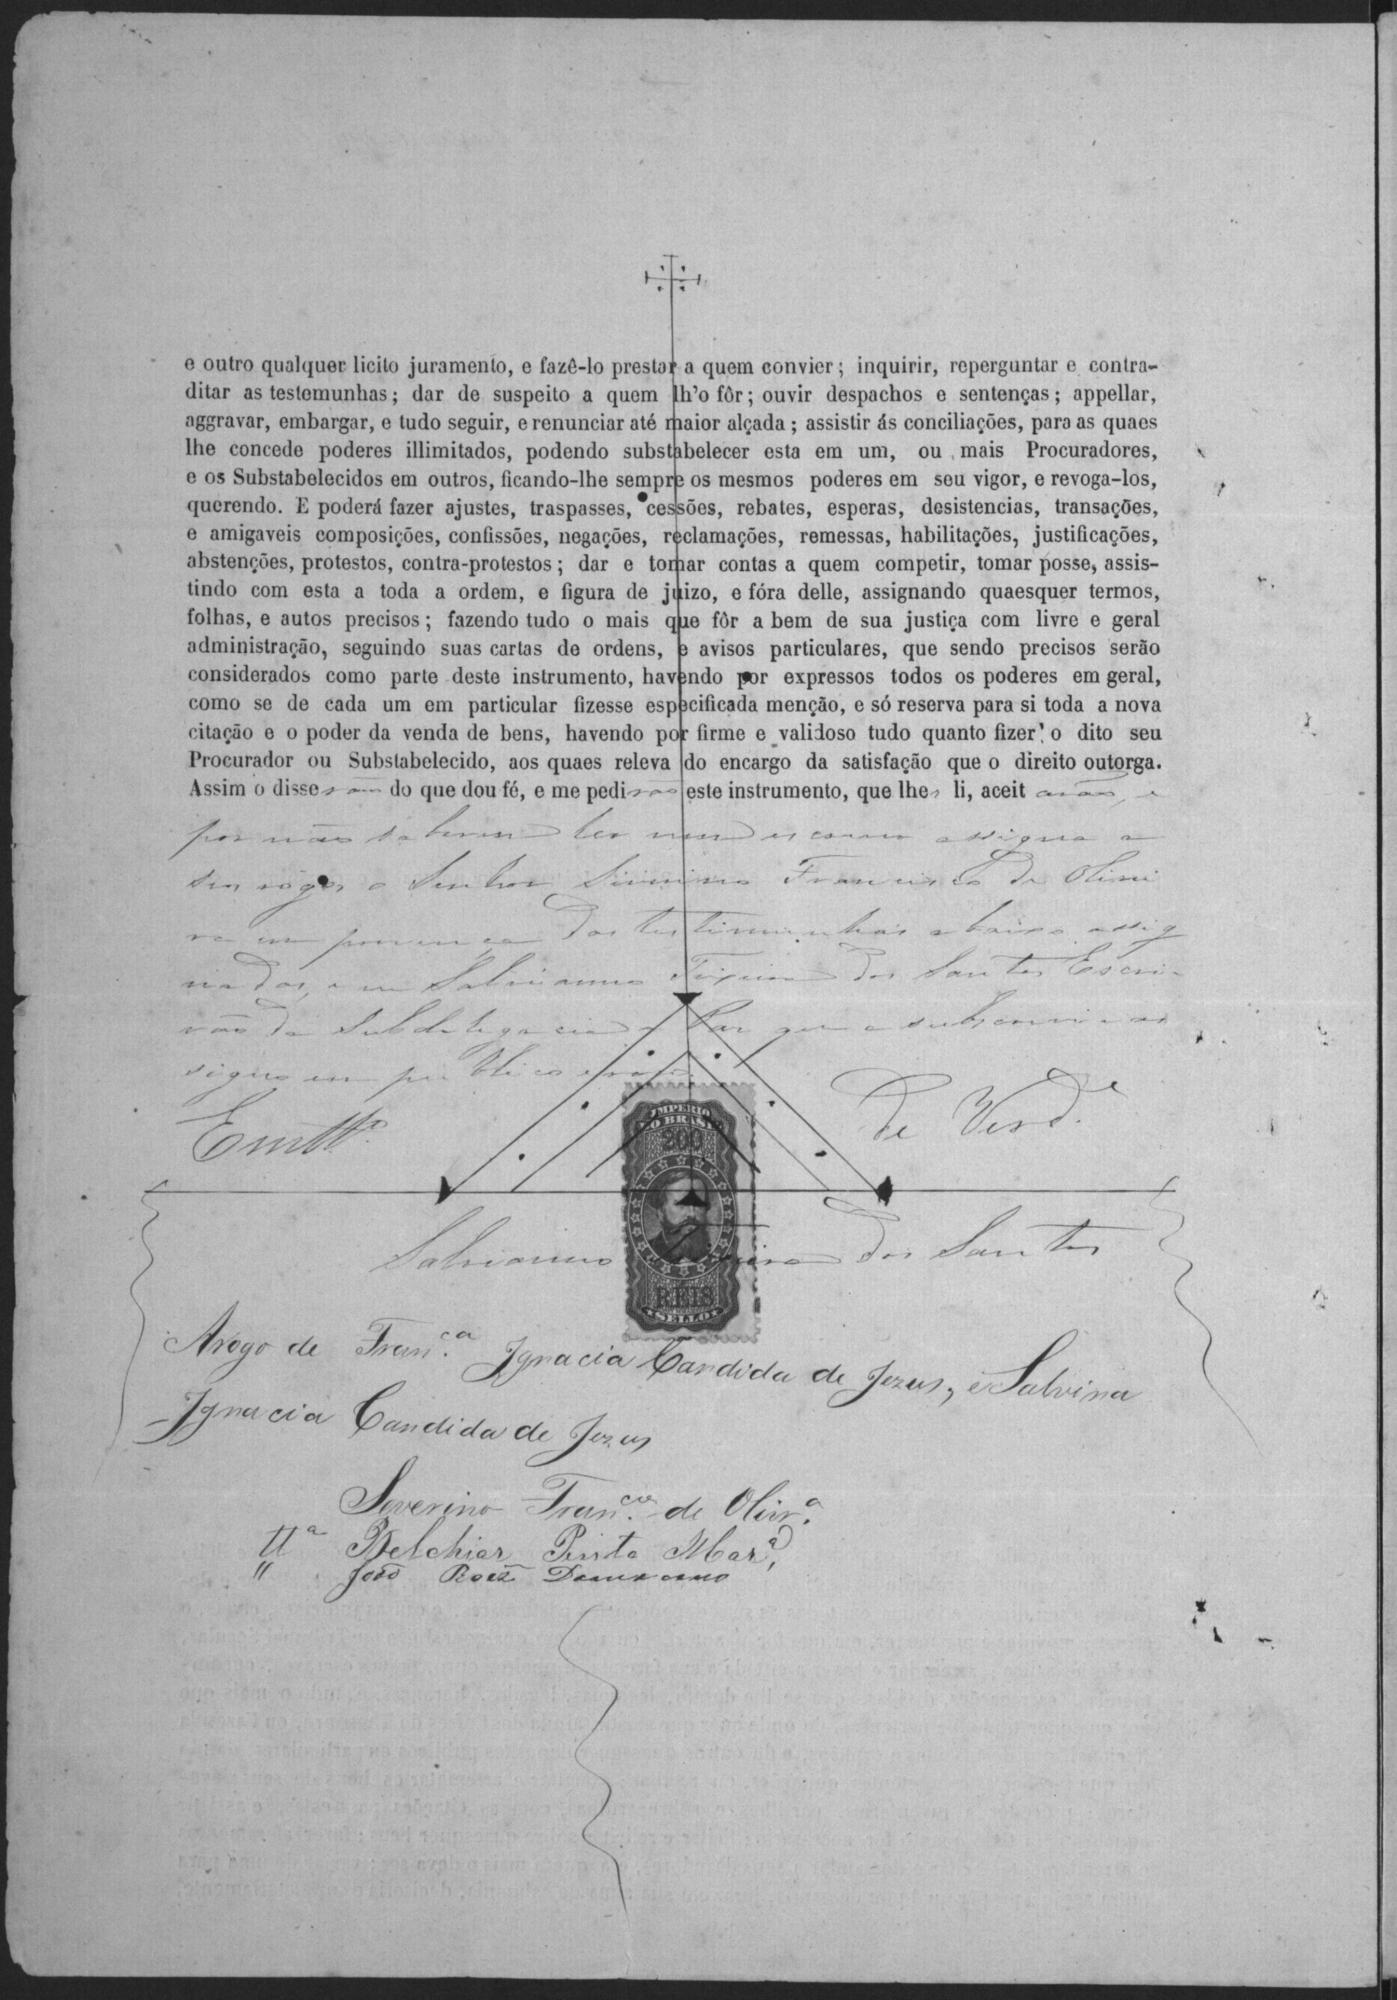 e outro qualquer licito juramento, e fazê-lo prestar a quem convier; inquirir, reperguntar e contra-
ditar as testemunhas; dar de suspeito a quem lh'o fôr; ouvir despachos e sentenças; appellar,
aggravar, embargar, e tudo seguir, e renunciar até maior alçada; assistir ás conciliações, para as quaes
lhe concede poderes illimitados, podendo substabelecer esta em um, ou mais Procuradores,
e os Substabelecidos em outros, ficando-lhe sempre os mesmos poderes em seu vigor, e revoga-los,
querendo. E poderá fazer ajustes, traspasses, cessões, rebates, esperas, desistencias, transações,
e amigaveis composições, confissões, negações, reclamações, remessas, habilitações, justificações,
abstenções, protestos, contra-protestos; dar e tomar contas a quem competir, tomar posse, assis-
tindo com esta a toda a ordem, e figura de juizo, e fóra delle, assignando quaesquer termos,
folhas, e autos precisos; fazendo tudo o mais que fôr a bem de sua justiça com livre e geral
administração, seguindo suas cartas de ordens, e avisos particulares, que sendo precisos serão
considerados como parte deste instrumento, havendo por expressos todos os poderes em geral,
como se de cada um em particular fizesse especificada menção, e só reserva para si toda a nova
citação e o poder da venda de bens, havendo por firme e validoso tudo quanto fizer o dito seu
Procurador ou Substabelecido, aos quaes releva do encargo da satisfação que o direito outorga.
Assim o disserão do que dou fé, e me pedirão este instrumento, que lhes li, aceitarão, e
por não saberem ler nem escrever assigna a
seu rogo o Senhor Siverino Francisco de Olivei
ra em prezença das testimunhas abaixo assig
nadas, e eu Salvianno Teixeira dos Santos Escri-
vão da Subdelegacia e Paz que o subscrevi e as
signo em publico e razo.
Em tt.º
De Verd.e
IMPERIO
DO BRASIL
200
REIS
SELLO
Salvianno Teixeira dos Santos
Arogo de Fran.ca Ignacia Candida de Jezus, e Salvina
Ignacia Candida de Jezus
Severino Fran.co de Olivr.a
tt.a Belchior Pinto Mar.
" João Roiz